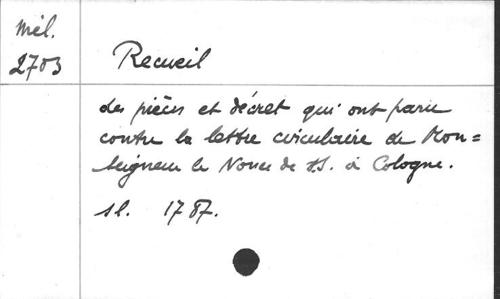 Mél.
2703
Recueil
des pièces et décret qui ont paru
contre la lettre circulaire de Mon=
seigneur le Nonce de S.S. à Cologne.
s.l. 1787.